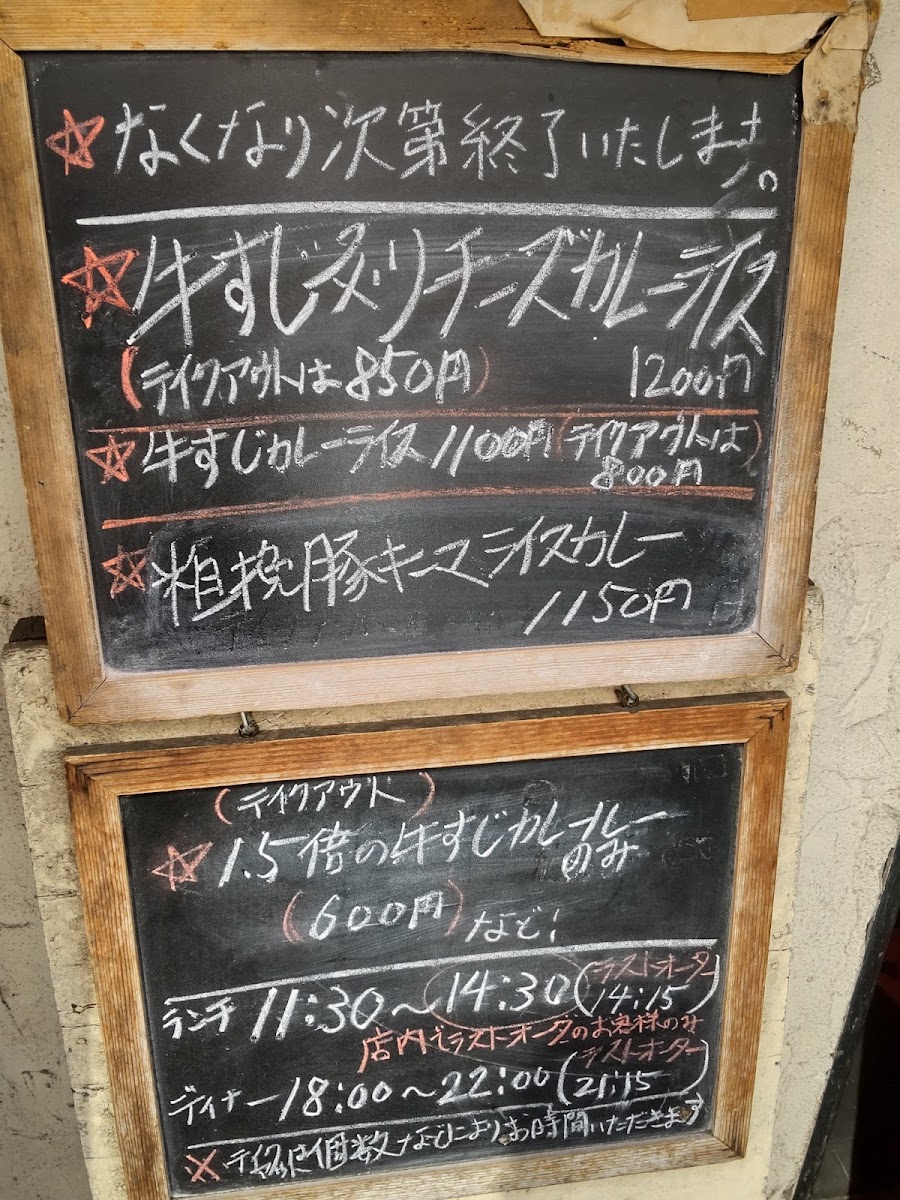 ☆なくなり次第終了いたします。
☆牛すじ炙りチーズカレーライス
(テイクアウトは850円) 1200円
☆牛すじカレーライス1100円(テイクアウトは
800円)
☆粗挽豚キーマライスカレー
1150円
(テイクアウト)
☆1.5倍の牛すじカレールー
のみ
(600円)など!
ランチ 11:30～14:30(ラストオーダー
14:15)
店内でラストオーダーのお客様のみ
ディナー18:00～22:00(ラストオーダー
21:15)
※ 個数などによりお時間いただきます